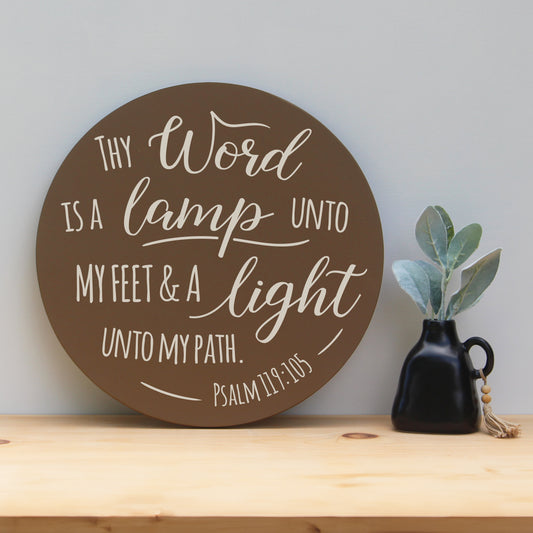 THY Word
IS A lamp UNTO
MY FEET & A light
UNTO MY PATH.
PSALM 119:105